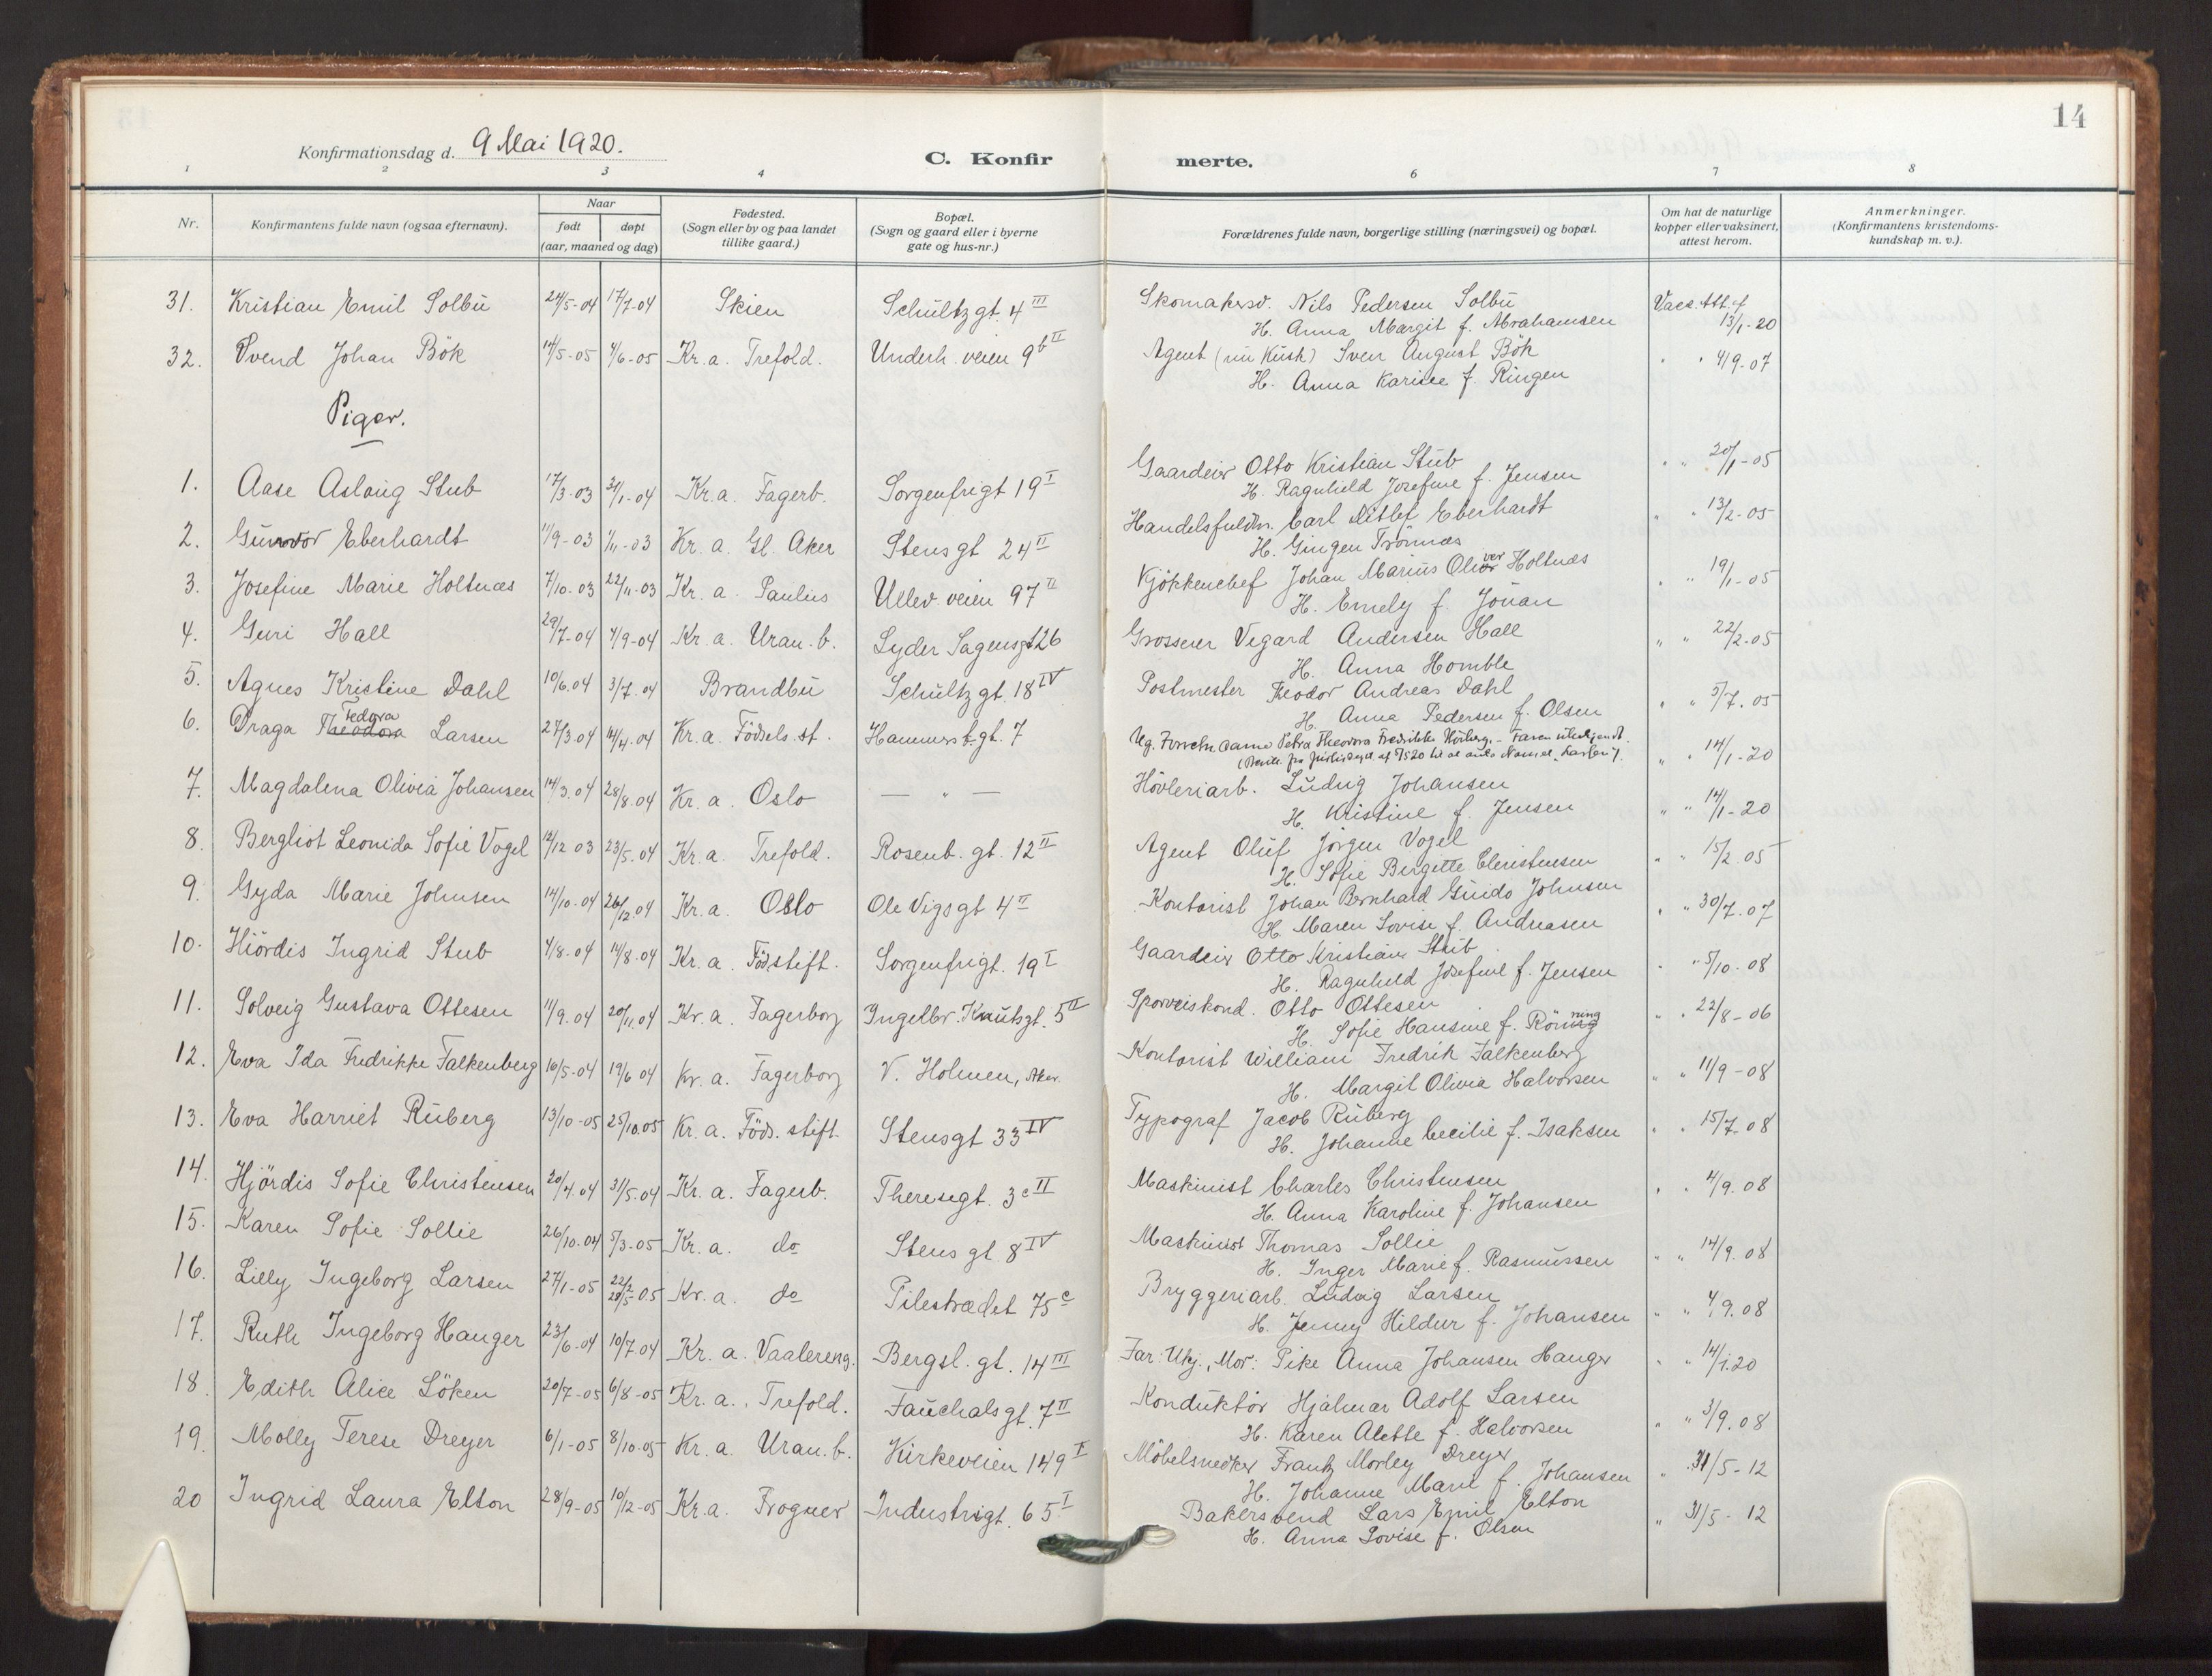 14
Konfirmationsdag d. 9 Mai 1920.
C. Konfir merte.
1 2 3 4 6 7 8
Nr. Konfirmantens fulde navn (ogsaa efternavn). Naar født døpt (aar, maaned og dag) Fødested. (Sogn eller by og paa landet tillike gaard.) Bopæl. (Sogn og gaard eller i byerne gate og hus-nr.) Forældrenes fulde navn, borgerlige stilling (næringsvei) og bopæl. Om hat de naturlige kopper eller vaksinert, attest herom. Anmerkninger. (Konfirmantens kristendoms-kundskap m. v.).
31. Kristian Emil Solbu 24/5-04 17/7-04 Skien Schultzgt. 4 III Skomakersv. Nils Pedersen Solbu Vacc. Att. af
H. Anna Margit f. Abrahamsen 13/1-20
32. Svend Johan Bök 14/5-05 4/6-05 Kr.a. Trefold. Underh. veien 9b II Agent Sven August Bök " " 4/9-07
H. Anna Karisee f. Ringen
Piger.
1. Aase Aslaug Stub 17/3-03 31/1-04 Kr.a. Fagerb. Sorgenfrigt 19 I Gaardeier Otto Kristian Stub " " 20/1-05
H. Ragnhild Josefine f. Jensen
2. Gunvor Eberhardt 11/9-03 1/11-03 Kr.a. Gl. Aker Stensgt 24 II Handelsfuldm. Carl Ditlef Eberhardt " " 13/2-05
H. Gingen Trönnæs
3. Josefine Marie Holtnæs 7/10.03 22/11-03 Kr.a. Paulus Ullev. veien 97 II Kjökkenchef Johan Marius Oliver Holtnæs " " 19/1-05
H. Emely f. Jouan
4. Guri Hall 29/7-04 4/9-04 Kr.a. Uran.b. Lyder Sagensgt 26 Grosserer Vegard Andersen Hall " " 22/2-05
H. Anna Homble
5. Agnes Kristine Dahl 10/6.04 3/7.04 Brandbu Schultzgt. 18 IV Postmester Theodor Andreas Dahl " " 5/7.05
H. Anna Pedersen f. Olsen
6. Draga Theodora Fedora Larsen 27/3.04 14/4.04 Kr.a. Födsels.st. Hammerst.gt. 7 Ug. Petra Theodora Fredrikke - Faren " " 14/1-20
7. Magdalena Olivia Johansen 14/3.04 28/8.04 Kr.a. Oslo — " — Hövleriarb. Ludvig Johansen " " 14/1-20
H. Kristine f. Jensen
8. Bergliot Leonida Sofie Vogel 12/12 03 23/5.04 Kr.a. Trefold. Rosenb. gt. 12 II Agent Oluf Jörgen Vogel " " 15/2.05
H. Sofie Birgitte Christensen
9. Gyda Marie Johnsen 14/10.04 26/12.04 Kr.a. Oslo Ole Vigsgt 4 II Kontorist Johan Bernhard Guido Johnsen " " 30/7.07
H. Maren Lovise f. Andreasen
10. Hiördis Ingrid Stub 4/8.04 14/8.04 Kr.a. Föd.stift. Sorgenfrigt. 19 I Gaardeier Otto Kristian Stub " " 5/10.08
H. Ragnhild Josefine f. Jensen
11. Solveig Gustava Ottesen 11/9.04 20/11.04 Kr.a. Fagerborg Ingelbr. Knutsgt. 5 II Sporveiskond. Otto Ottesen " " 22/8-06
H. Sofie Hansine f. Rönning
12. Eva Ida Fredrikke Falkenberg 16/5-04 19/6 04 Kr.a. Fagerborg V. Holmen, Aker. Kontorist William Fredrik Falkenberg " " 11/9-08
H. Margit Olivia Halvorsen
13. Eva Harriet Ruberg 13/10-05 25/10.05 Kr.a. Föds. stift. Stensgt 33 IV Typograf Jacob Ruberg " " 15/7-08
H. Johanne Cecilie f. Isaksen
14. Hjördis Sofie Christensen 20/4.04 31/5.04 Kr.a. Fagerb. Theresegt. 3c II Maskinist Charles Christensen " " 4/9.08
H. Anna Karoline f. Johansen
15. Karen Sofie Sollie 26/10-04 5/3-05 Kr.a. do Stensgt 8 IV Maskinist Thomas Sollie " " 14/9.08
H. Inger Marie f. Rasmussen
16. Lilly Ingeborg Larsen 27/1-05 Kr.a. do Pilestrædet 75c Bryggeriarb. Ludvig Larsen " " 4/9.08
H. Jenny Hildur f. Johansen
17. Ruth Ingeborg Hauger 23/6-04 10/7.04 Kr.a. Vaalereng. Bergsl. gt. 14 III Far: Ukj., Mor: Pike Anna Johansen Hauger " " 14/1.20
18. Edith Alice Löken 20/7-05 6/8-05 Kr.a. Trefold. Fauchalsgt. 7 II Konduktör Hjalmar Adolf Larsen " " 3/9.08
H. Karen Alette f. Halvorsen
19. Molly Terese Dreyer 6/1-05 8/10.05 Kr.a. Uran.b. Kirkeveien 149 I Möbelsnedker Frantz Morley Dreyer " 31/5-12
H. Johanne Marie f. Johansen
20 Ingrid Laura Elton 28/9-05 10/12-05 Kr.a. Frogner Industrigt. 65 I Bakersvend Lars Emil Elton " 31/5-12
H. Anna Lovise f. Olsen